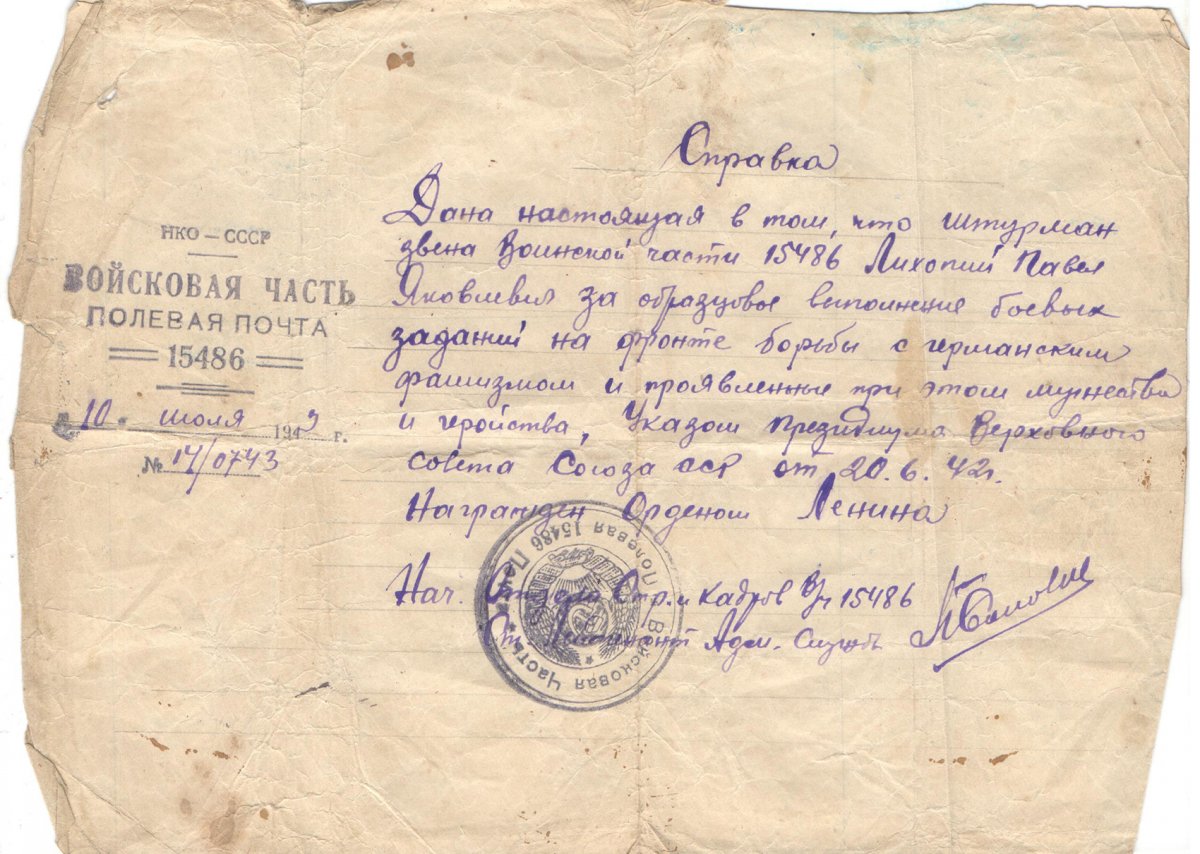 Справка
НКО — СССР
ВОЙСКОВАЯ ЧАСТЬ
ПОЛЕВАЯ ПОЧТА
15486
10 июля 1943 г.
№ 14/0743
Дана настоящая в том, что штурман
звена Воинской части 15486 Лихопий Павел
Яковлевич за образцовое выполнение боевых
заданий на фронте борьбы с германским
фашизмом и проявленные при этом мужества
и геройства, Указом Президиума Верховного
совета Союза сср от 20.6.42г.
Награжден Орденом Ленина
Нач. Отдела Стр. и кадров В/ч 15486
Ст. Лейтенант Адм. Службы
Войсковая Часть Полевая 15486